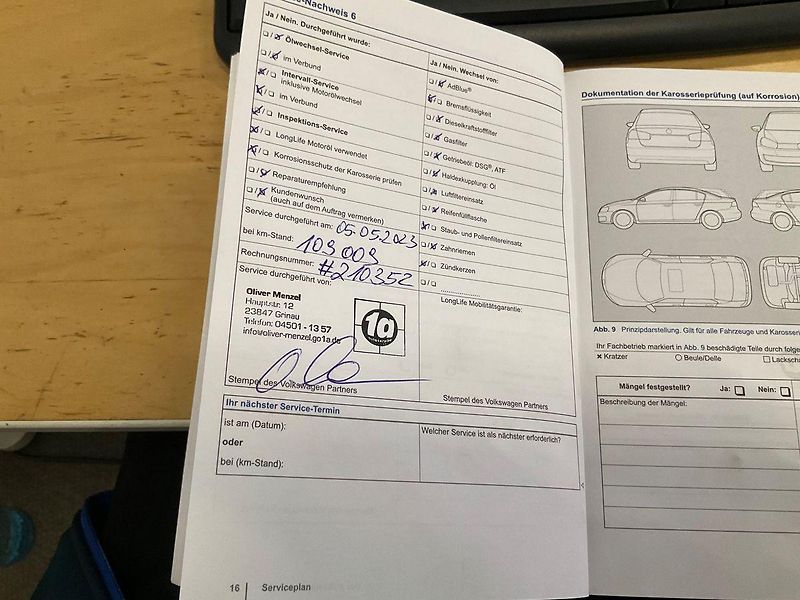 e-Nachweis 6
Ja / Nein. Durchgeführt wurde:
Ölwechsel-Service
im Verbund
Intervall-Service
inklusive Motorölwechsel
im Verbund
Inspektions-Service
LongLife Motoröl verwendet
Korrosionsschutz der Karosserie prüfen
Reparaturempfehlung
Kundenwunsch
(auch auf dem Auftrag vermerken)
Service durchgeführt am: 05.05.2023
bei km-Stand: 109 009
Rechnungsnummer: #210352
Service durchgeführt von:
Oliver Menzel
Hauptstr. 12
23847 Grinau
Telefon: 04501 - 13 57
info@oliver-menzel.go1a.de
1a
Stempel des Volkswagen Partners
Ja / Nein. Wechsel von:
AdBlue®
Bremsflüssigkeit
Dieselkraftstofffilter
Gasfilter
Getriebeöl: DSG®, ATF
Haldexkupplung: Öl
Luftfiltereinsatz
Reifenfüllflasche
Staub- und Pollenfiltereinsatz
Zahnriemen
Zündkerzen
LongLife Mobilitätsgarantie:
Stempel des Volkswagen Partners
Ihr nächster Service-Termin
ist am (Datum):
oder
bei (km-Stand):
Welcher Service ist als nächster erforderlich?
16 Serviceplan
Dokumentation der Karosserieprüfung (auf Korrosion)
Abb. 9 Prinzipdarstellung. Gilt für alle Fahrzeuge und Karosserie
Ihr Fachbetrieb markiert in Abb. 9 beschädigte Teile durch folge
× Kratzer ○ Beule/Delle □ Lacksch
Mängel festgestellt? Ja: Nein:
Beschreibung der Mängel: